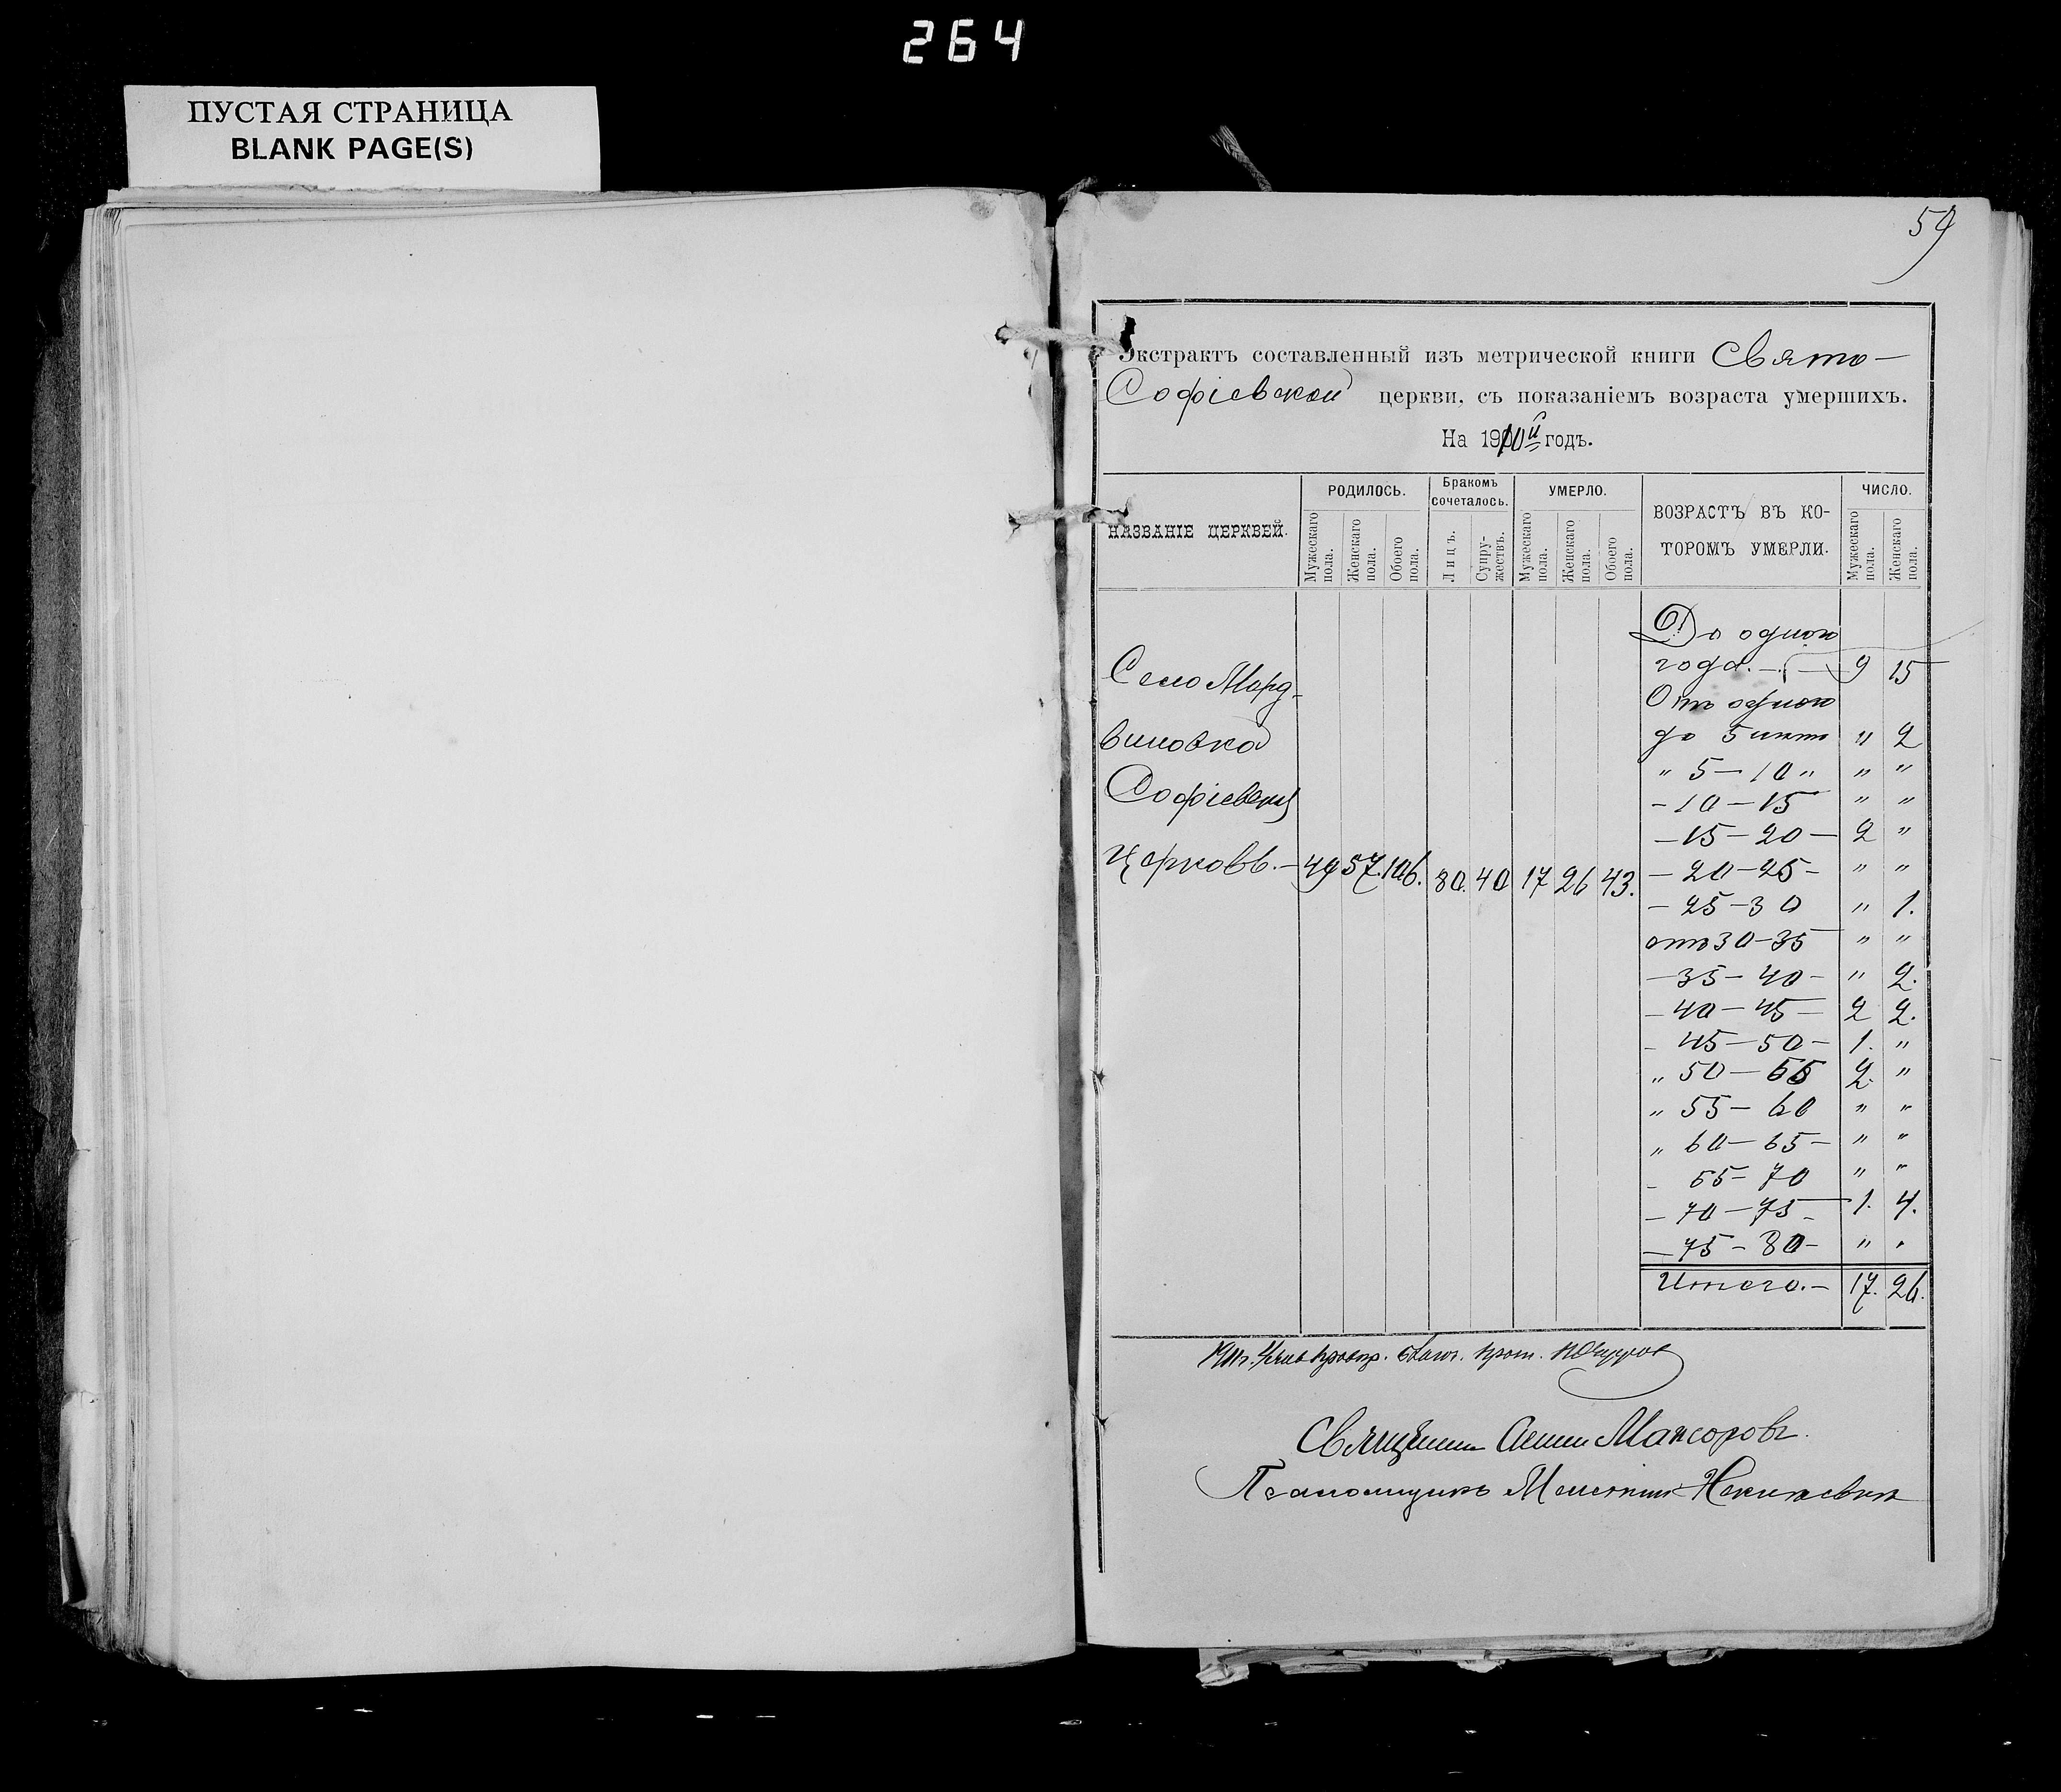 264
ПУСТАЯ СТРАНИЦА
BLANK PAGE(S)
59
Экстрактъ составленный изъ метрической книги Свято-
Софіевской церкви, съ показаніемъ возраста умершихъ.
На 1910й годъ.
НАЗВАНІЕ ЦЕРКВЕЙ.
РОДИЛОСЬ.
Мужескаго пола.
Женскаго пола.
Обоего пола.
Бракомъ сочеталось.
Лицъ.
Супружествъ.
УМЕРЛО.
Мужескаго пола.
Женскаго пола.
Обоего пола.
ВОЗРАСТЪ ВЪ КО-
ТОРОМЪ УМЕРЛИ.
ЧИСЛО.
Мужескаго пола.
Женскаго пола.
Село Морд-
виновка
Софіевская
Церковь.— 49 57. 106. 80. 40 17 26 43.
До одного
года.— 9 15
Отъ одного
до 5 лѣтъ " 2
" 5—10 " " "
-10—15 " "
—15—20— 2 "
—20—25- " "
—25—30 " 1.
отъ 30—35 " "
—35—40- " 2.
—40—45— 2 2.
- 45—50- 1. "
" 50—55 2. "
" 55—60 " "
" 60—65— " "
- 65-70 " "
—70—75— 1. 4.
—75-80- " "
Итого.— 17. 26.
прот.
Священникъ Мансоровъ.
Псаломщикъ